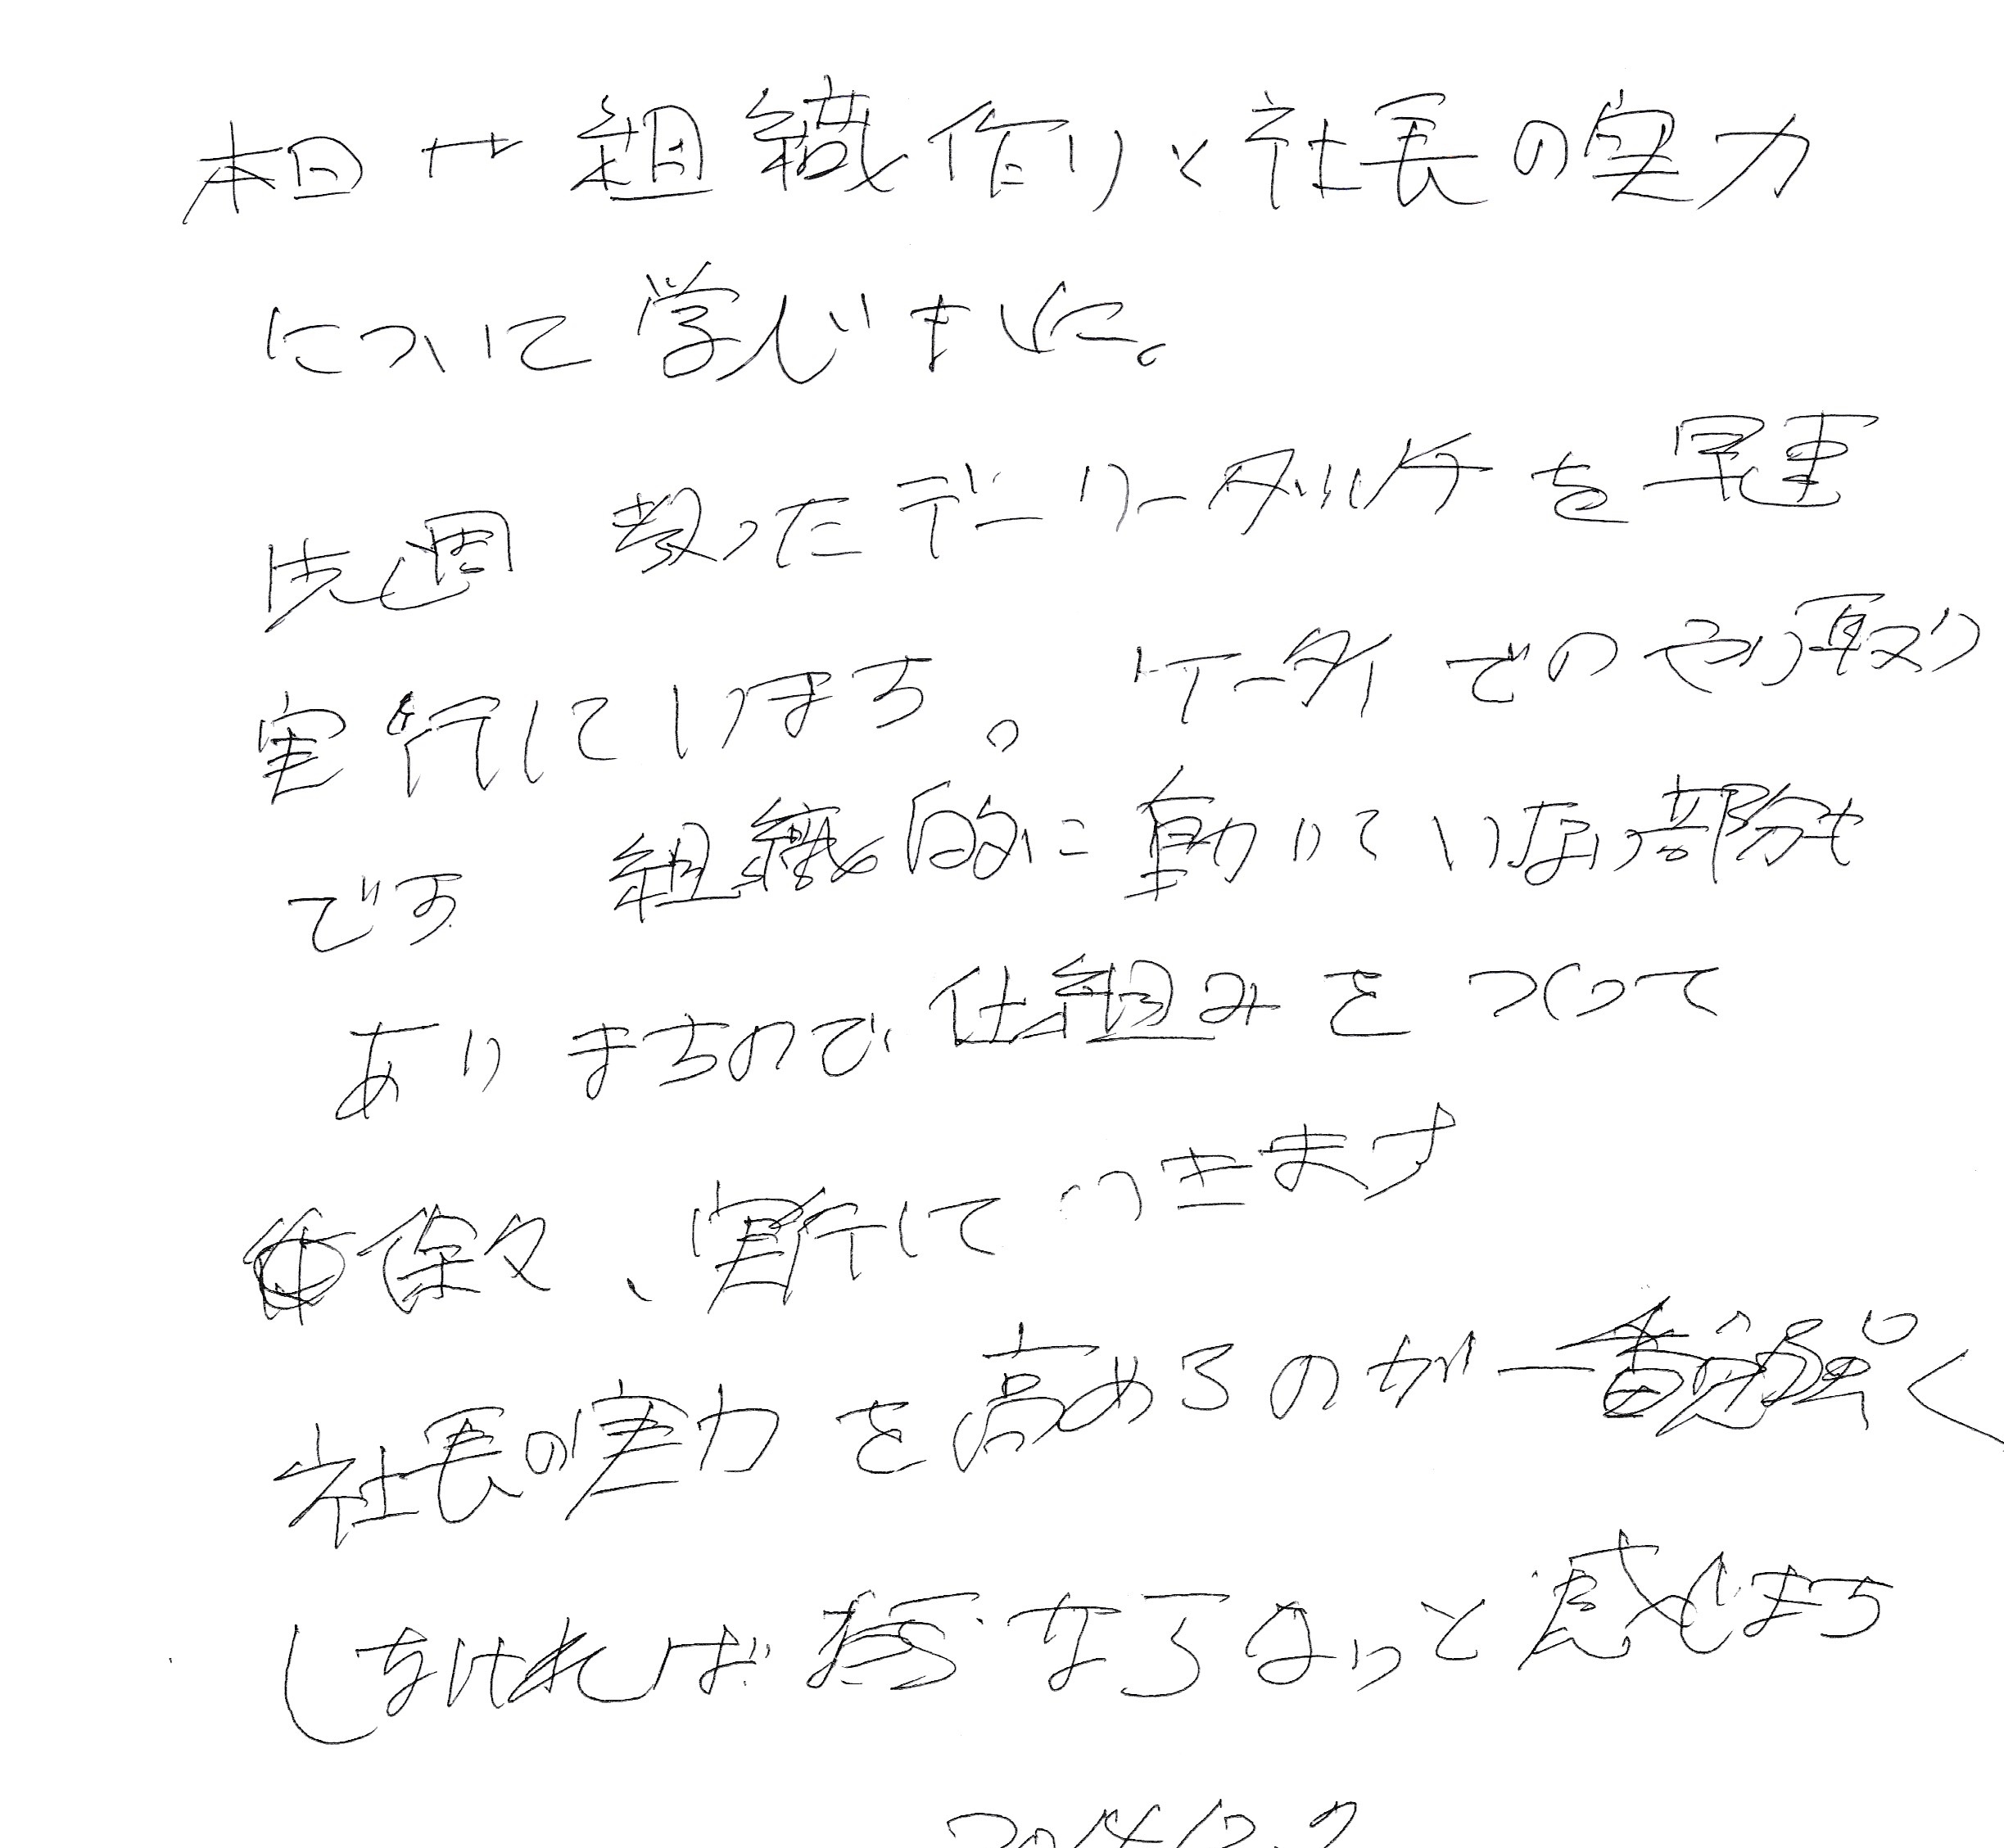 本日は組織作りと社長の実力
について学びました。
先週教ったデーリータッチを早速
実行しています。ケータイでのやり取り
です 組織的に動いていない部分も
ありますので、仕組みをつくって
徐々、実行していきます
社長の実力を高めるのが一番勉強
しなければならないと感じます